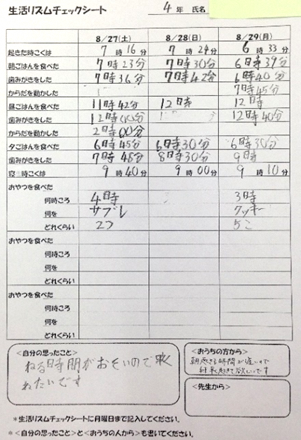 生活リズムチェックシート 4年 氏名
8/27(土) 8/28(日) 8/29(月)
起きた時こくは 7時16分 7時29分 6時33分
朝ごはんを食べた 7時23分 7時30分 6時39分
歯みがきをした 7時36分 7時42分 6時40分
からだを動かした
昼ごはんを食べた 11時42分 12時 12時
歯みがきをした 12時00分 12時40分
からだを動かした 2時00分
夕ごはんを食べた 6時45分 6時30分 6時30分
歯みがきをした 7時45分 8時30分 9時
9時40 9時00分 9時10分
おやつを食べた
何時ころ 4時 3時
何を サブレ クッキー
どれくらい 2つ 5こ
おやつを食べた
何時ころ
何を
どれくらい
おやつを食べた
何時ころ
何を
どれくらい
<自分の思ったこと>
ねる時間がおそいので早く
ねたいです
<おうちの方から>
<先生から>
*生活リズムチェックシートに月曜日まで記入してください。
*<自分の思ったこと>と<おうちの人から>も書いてください。